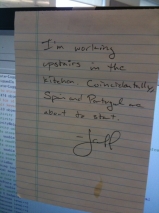 I'm working
upstairs in the
kitchen. Coincidentally,
Spain and Portugal are
about to start
-Jeff